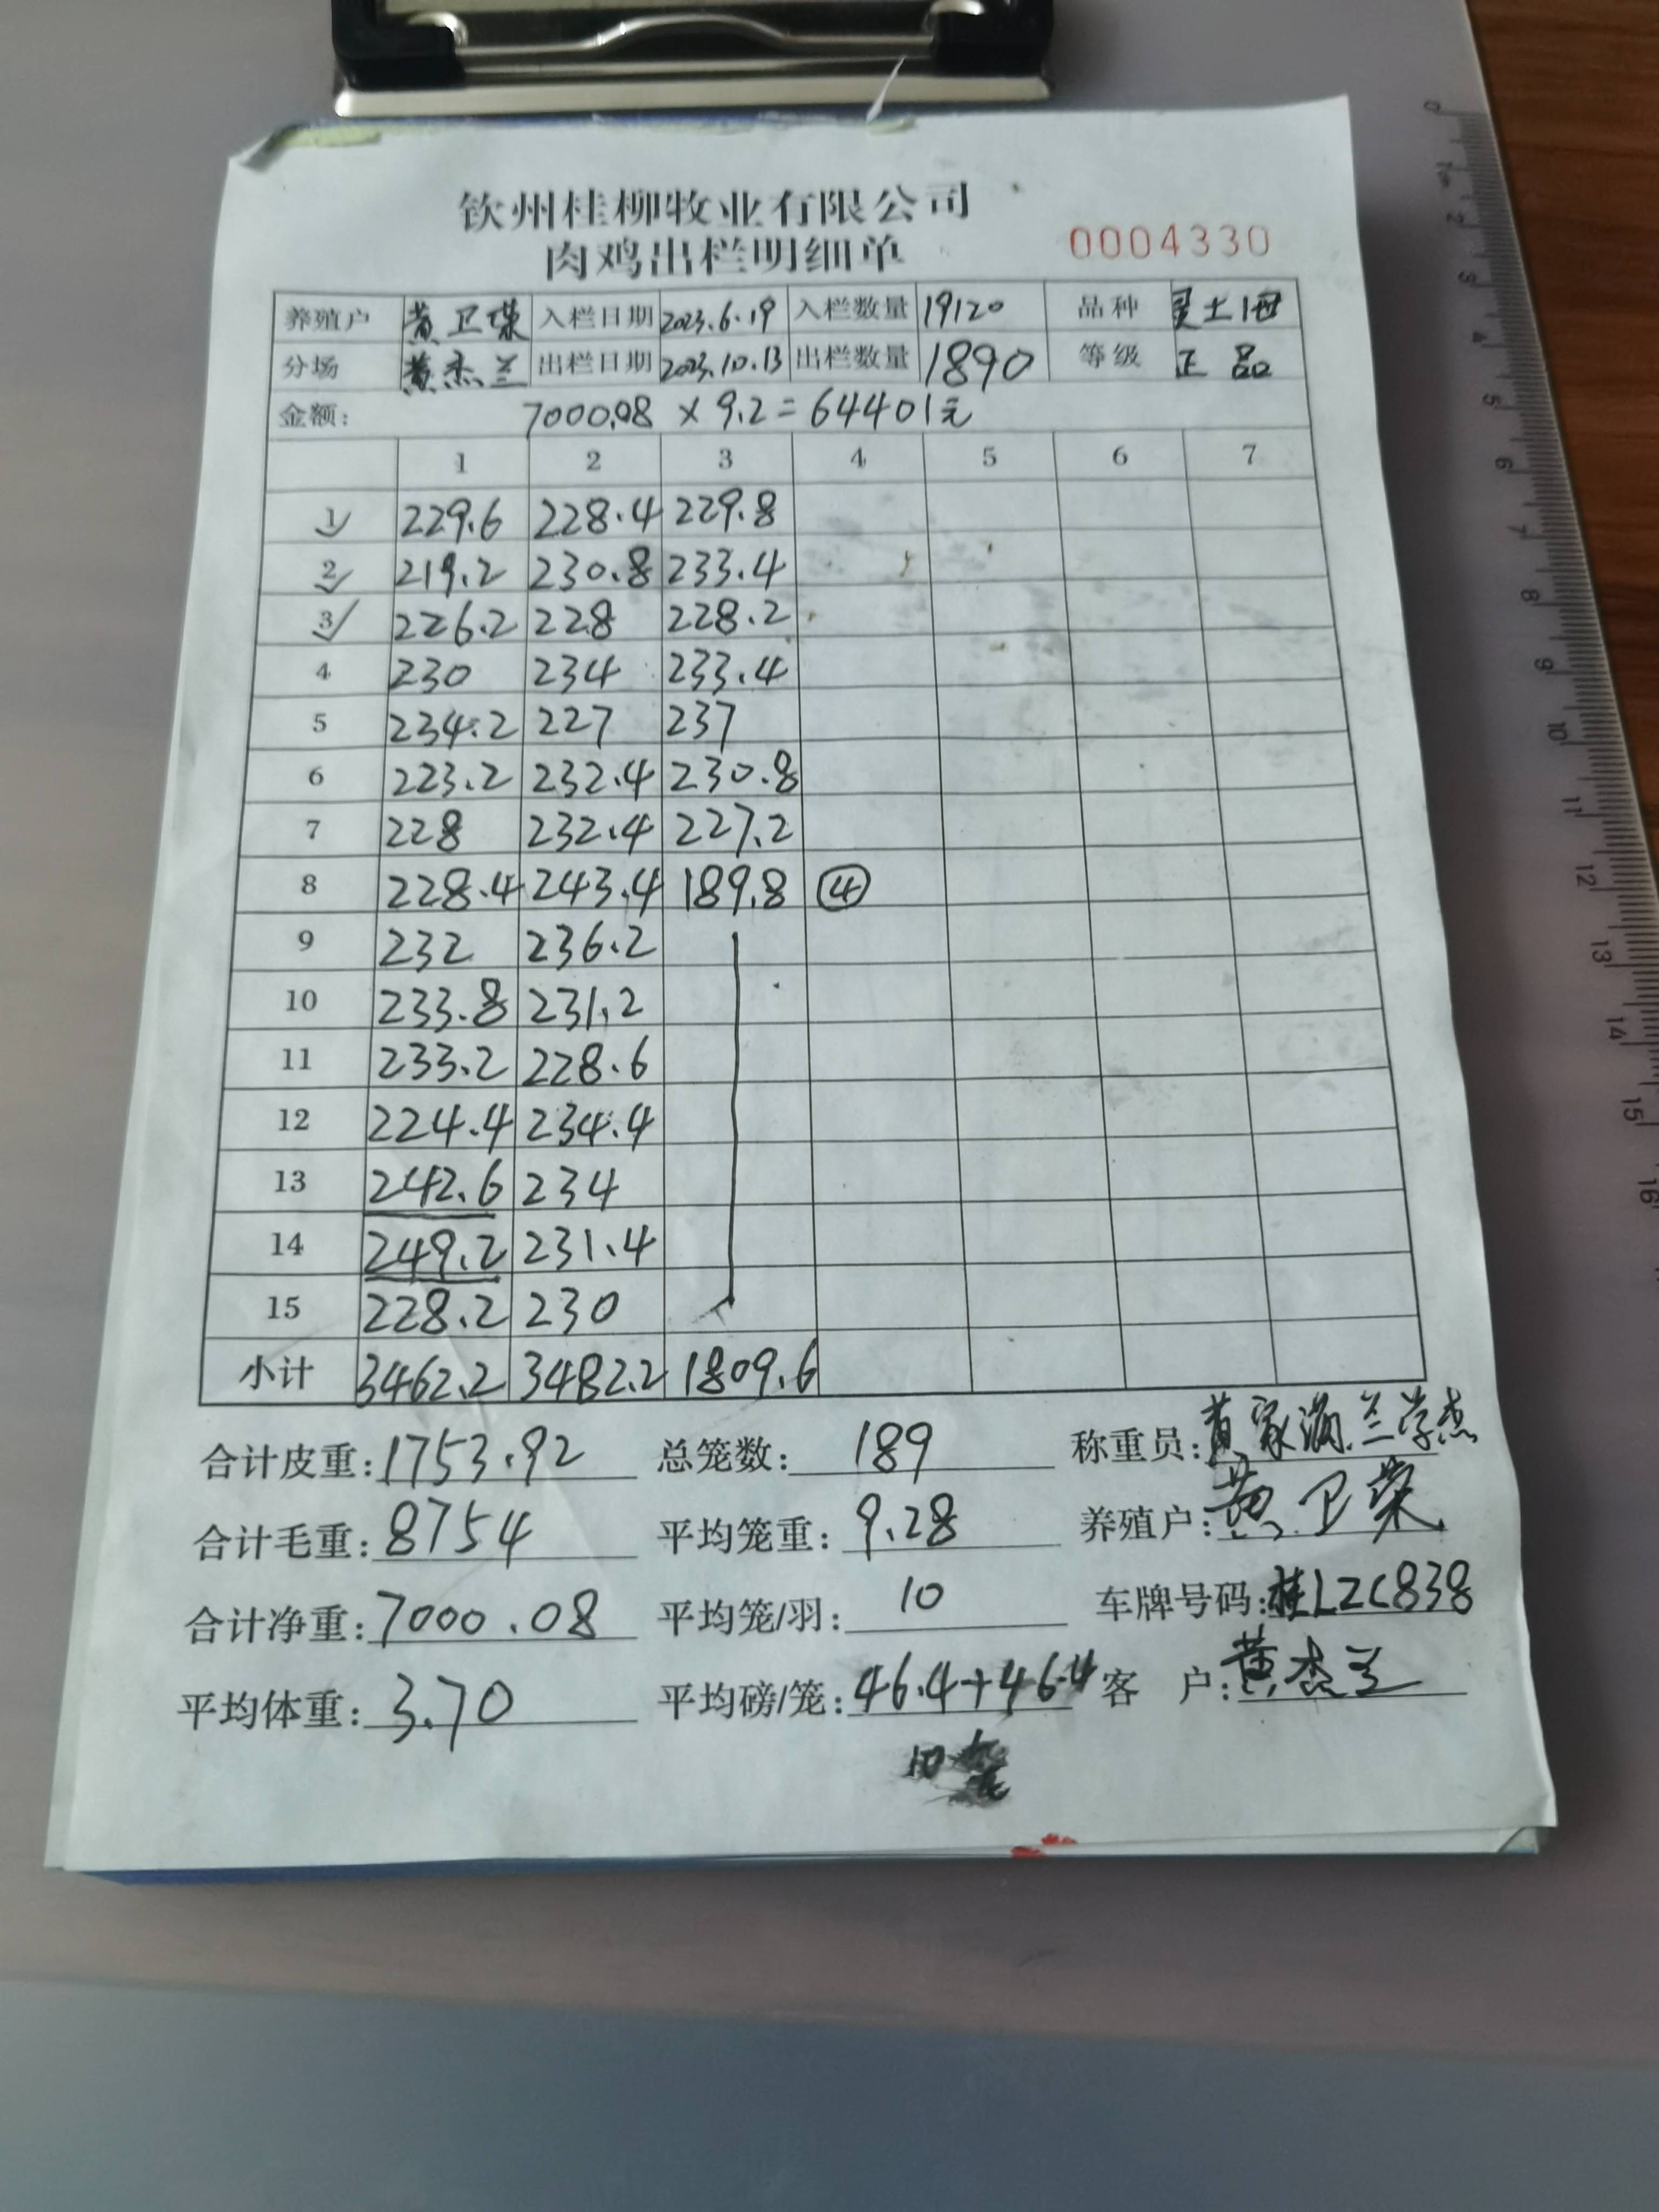 钦州桂柳牧业有限公司
肉鸡出栏明细单 0004330
养殖户 黄卫荣 入栏日期 2023.6.19 入栏数量 19120 品种 灵土1母
分场 黄杰兰 出栏日期 2023.10.13 出栏数量 1890 等级 正品
金额: 7000.08 × 9.2 = 64401元
1 2 3 4 5 6 7
1 229.6 228.4 229.8
2 219.2 230.8 233.4
3 226.2 228 228.2
4 230 234 233.4
5 234.2 227 237
6 223.2 232.4 230.8
7 228 232.4 227.2
8 228.4 243.4 189.8 ④
9 232 236.2
10 233.8 231.2
11 233.2 228.6
12 224.4 234.4
13 242.6 234
14 249.2 231.4
15 228.2 230
小计 3462.2 3482.2 1809.6
合计皮重: 1753.92 总笼数: 189 称重员: 黄家 兰学杰
合计毛重: 8754 平均笼重: 9.28 养殖户: 黄卫荣
合计净重: 7000.08 平均笼/羽: 10 车牌号码: 桂LZC838
平均体重: 3.70 平均磅/笼: 46.4+46.4 客 户: 黄杰兰
10
0 1 2 3 4 5 6 7 8 9 10 11 12 13 14 15 16